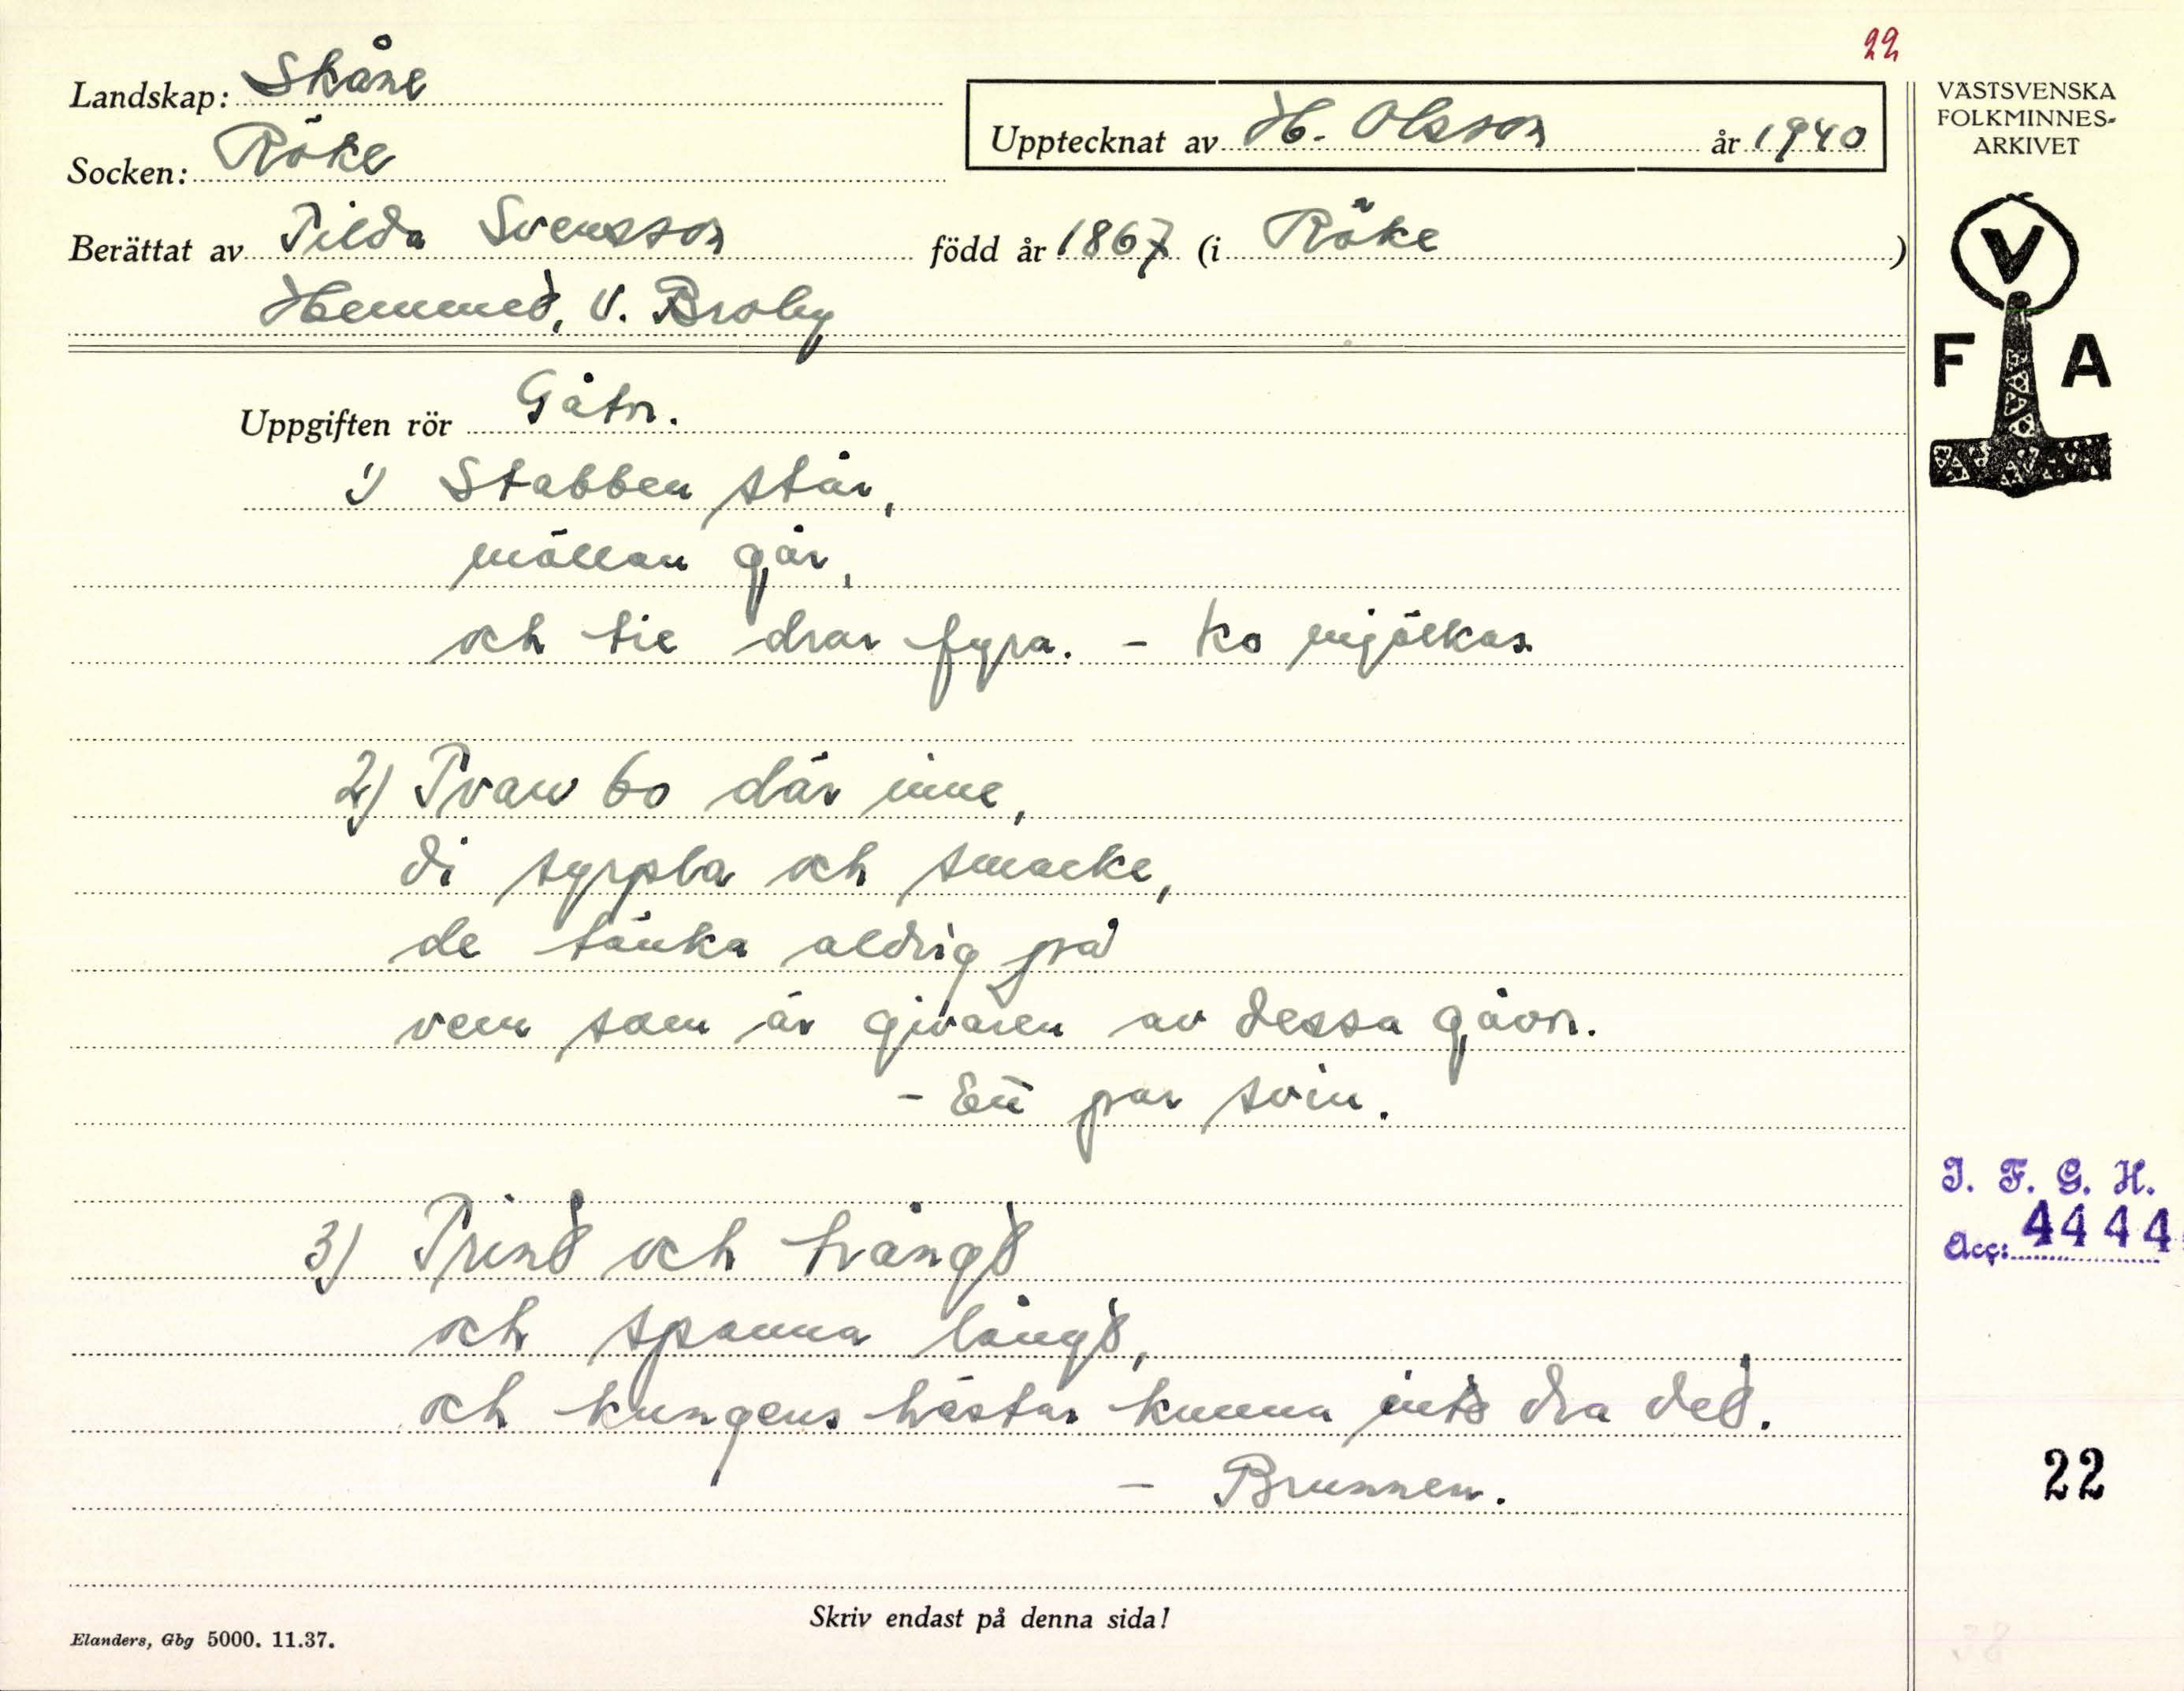 22
Landskap: Skåne
Upptecknat av H. Olsson år 1940
VÄSTSVENSKA
FOLKMINNES-
ARKIVET
Socken: Röke
Berättat av Tilda Svensson född år 1867 (i Röke)
Hemmet, V. Broby
V
F A
Uppgiften rör Gåtor.
1) Stabben står,
möllan går,
och tie drar fyra. - Ko mjölkas
2) Tvau bo där inne,
di syrpla och smacke,
de tänka aldrig på
vem som är givaren av dessa gåvor.
- Ett par svin.
3) Trint och trångt
och spanna långt,
och kungens hästar kunna inte dra det.
- Brunnen.
I. F. G. H.
Acc: 4444
22
Skriv endast på denna sida!
Elanders, Gbg 5000. 11.37.
38